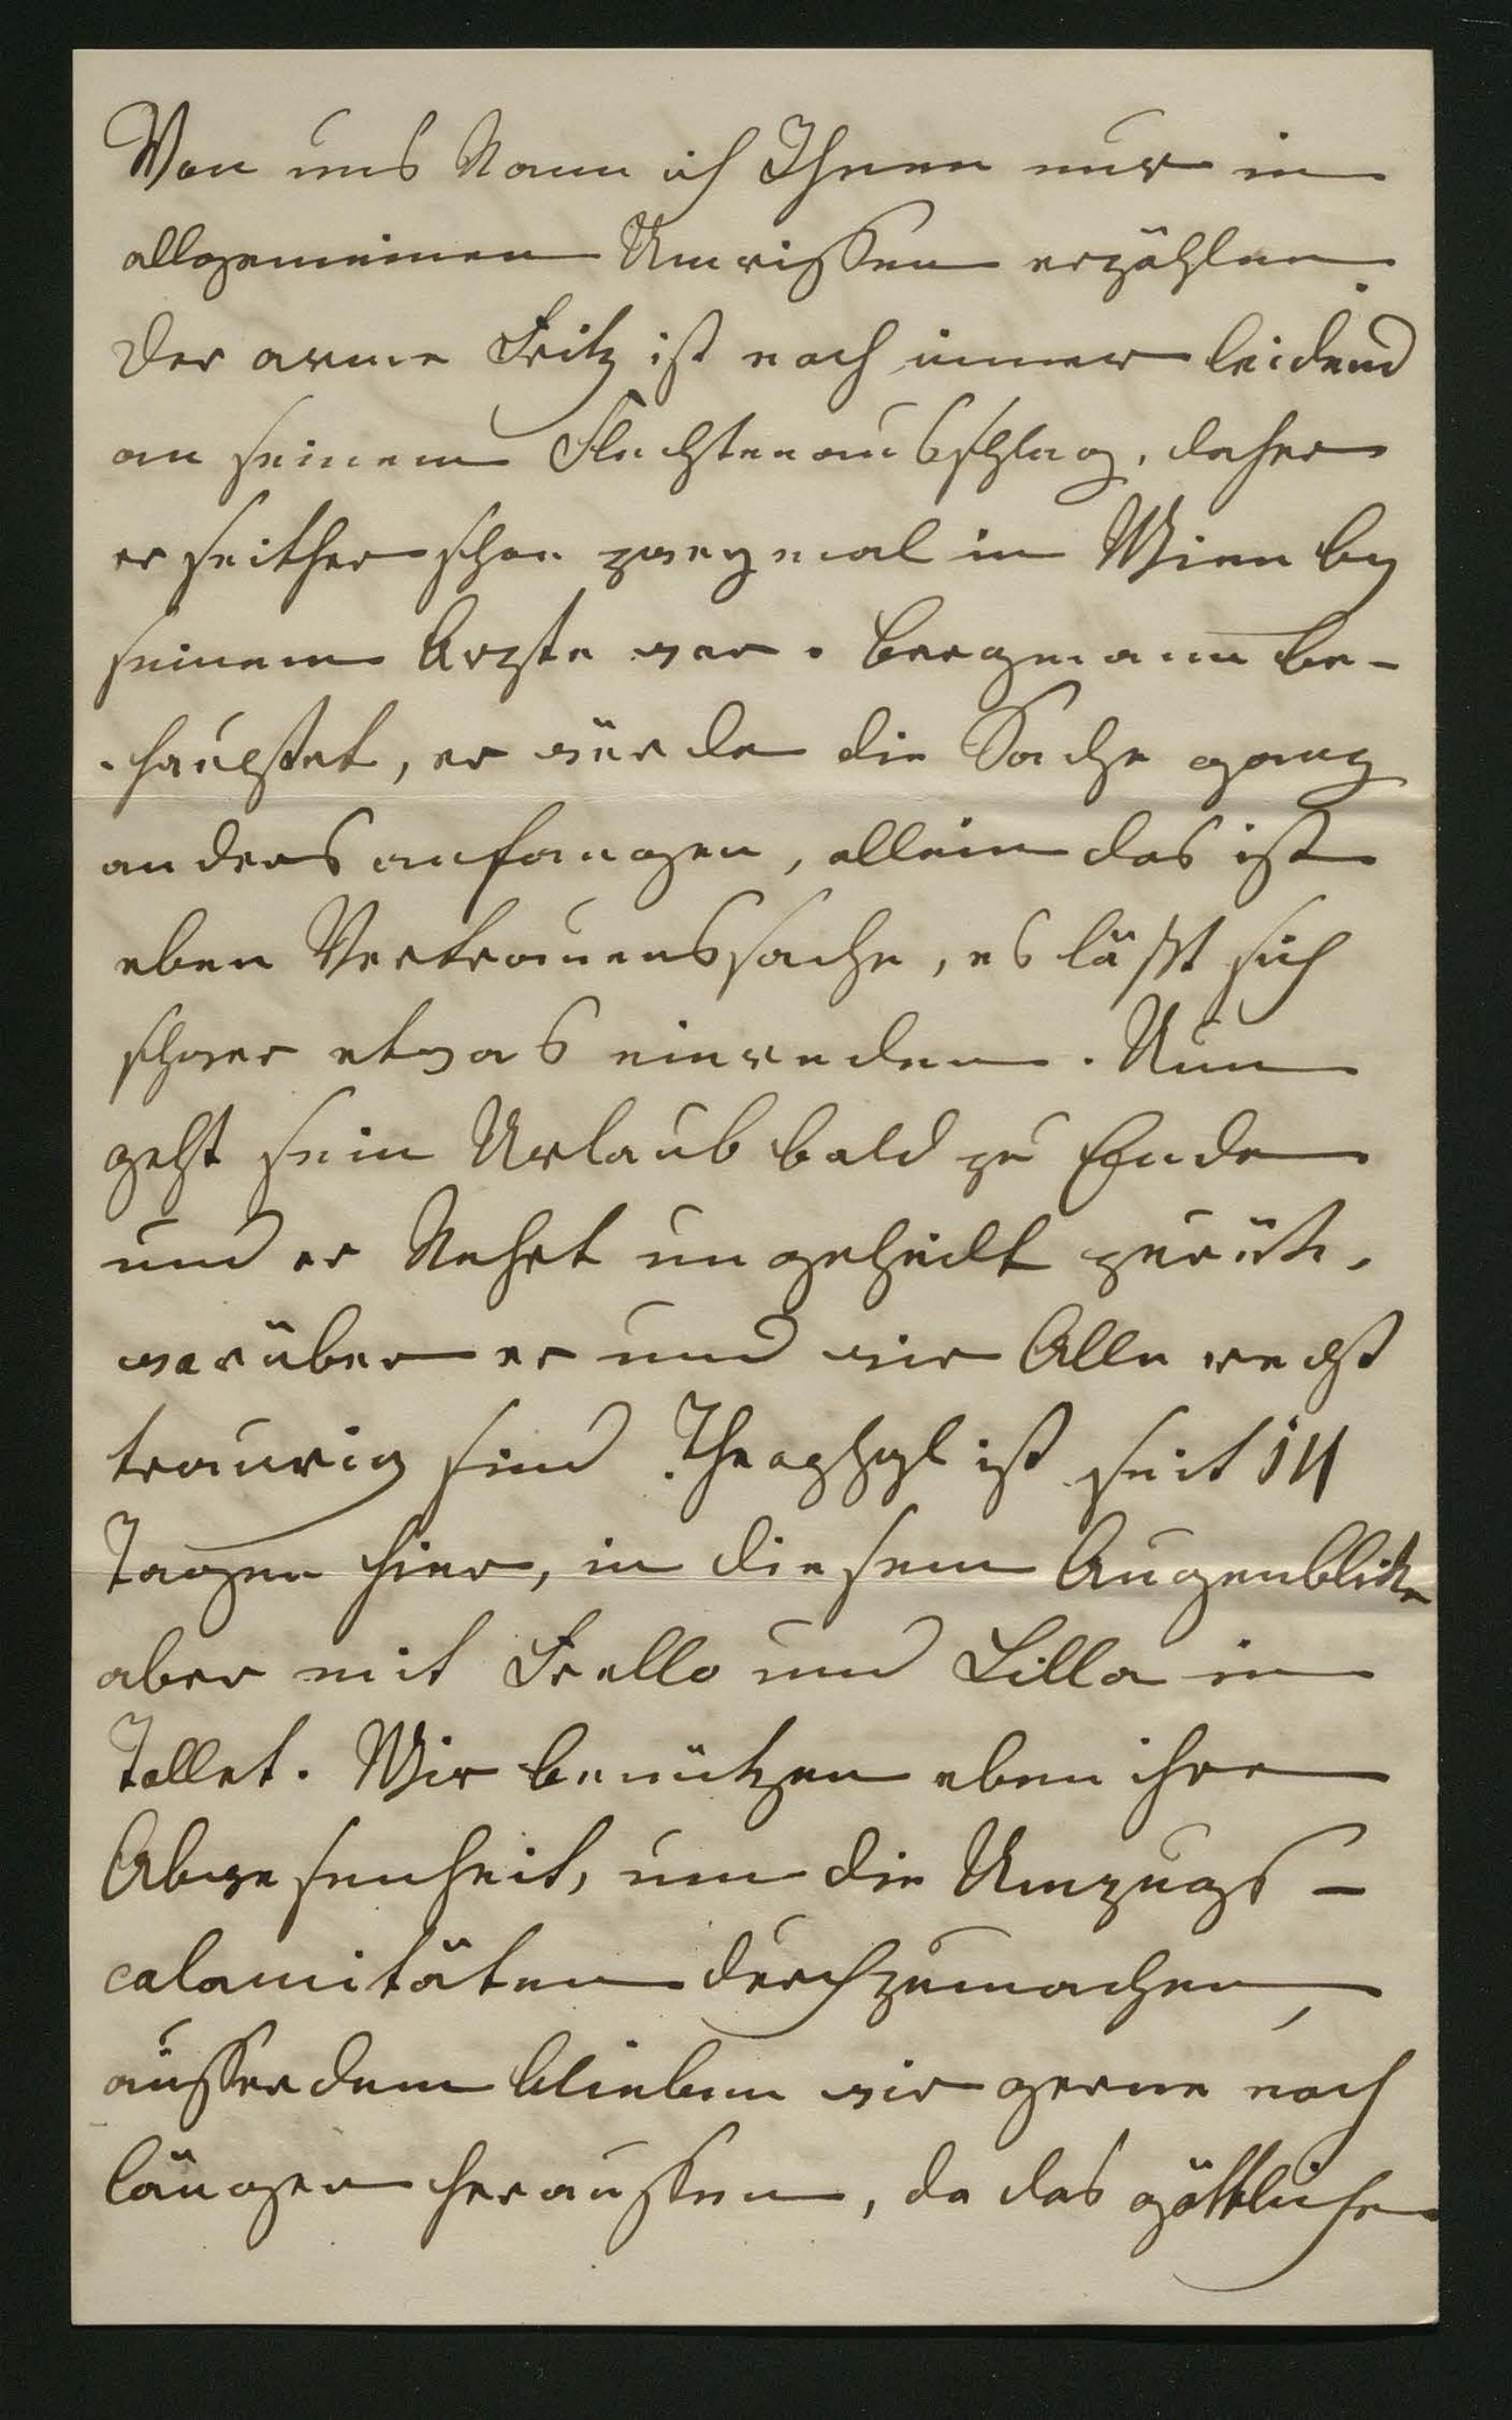 Von uns kann ich Ihnen nur in
allgemeinen Umrissen erzählen.
Der arme Fritz ist noch immer leidend
an seinem Flechtenausschlag, daher
er seither schon zweymal in Wien bey
seinem Arzte war. Bergmann be-
-hauptet, er würde die Sache ganz
anders anfangen, allein das ist
eben Vertrauenssache, es läßt sich
schwer etwas einreden. Nun
geht sein Urlaub bald zu Ende
und er kehrt ungeheilt zurük,
worüber er und wir Alle recht
traurig sind. Theophyl ist seit 14
Tagen hier, in diesem Augenblicke
aber mit Frello und Lilla in
Tollet. Wir benützen eben ihre
Abwesenheit, um die Umzugs-
calamitäten durchzumachen,
ausserdem blieben wir gerne noch
länger heraussen, da das göttliche